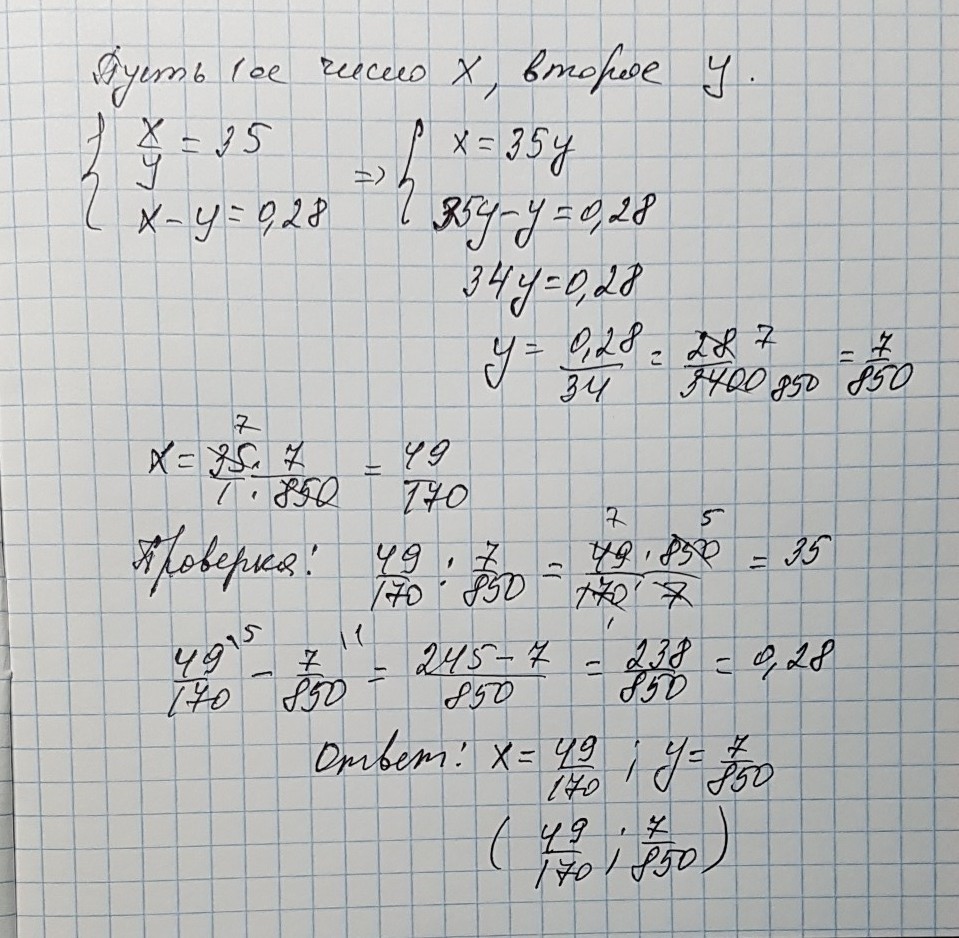 Пусть 1ое число x, второе y.
{ x/y = 35 => { x = 35y
x - y = 0,28 35y - y = 0,28
34y = 0,28
y = 0,28/34 = 28 7/3400 850 = 7/850
7
x = 35/1 · 7/850 = 49/170
Проверка: 49/170 : 7/850 = 49 7 · 850 5/170 1 · 7 = 35
49\5/170 - 7\1/850 = 245 - 7/850 = 238/850 = 0,28
Ответ: x = 49/170 ; y = 7/850
( 49/170 ; 7/850 )